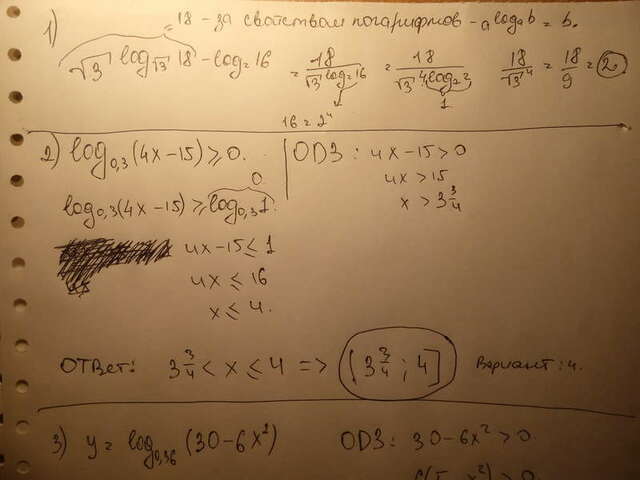 1) = 18 - за свойством логарифмов - a^log_a b = b.
√3^(log_√3 18 - log₂ 16) = 18/√3^(log₂ 16) = 18/√3^(4log₂ 2) 18/√3^4 = 18/9 = 2.
16 = 2⁴ 1
2) log₀,₃(4x-15) ≥ 0. ODЗ: 4x-15 > 0
0 4x > 15
log₀,₃(4x-15) ≥ log₀,₃ 1. x > 3 3/4
4x-15 ≤ 1
4x ≤ 16
x ≤ 4.
ОТВЕТ: 3 3/4 < x ≤ 4 => (3 3/4 ; 4] Вариант: 4.
3) y = log₀,₃₆ (30-6x²) ODЗ: 30-6x² > 0.
6(5-x²) > 0